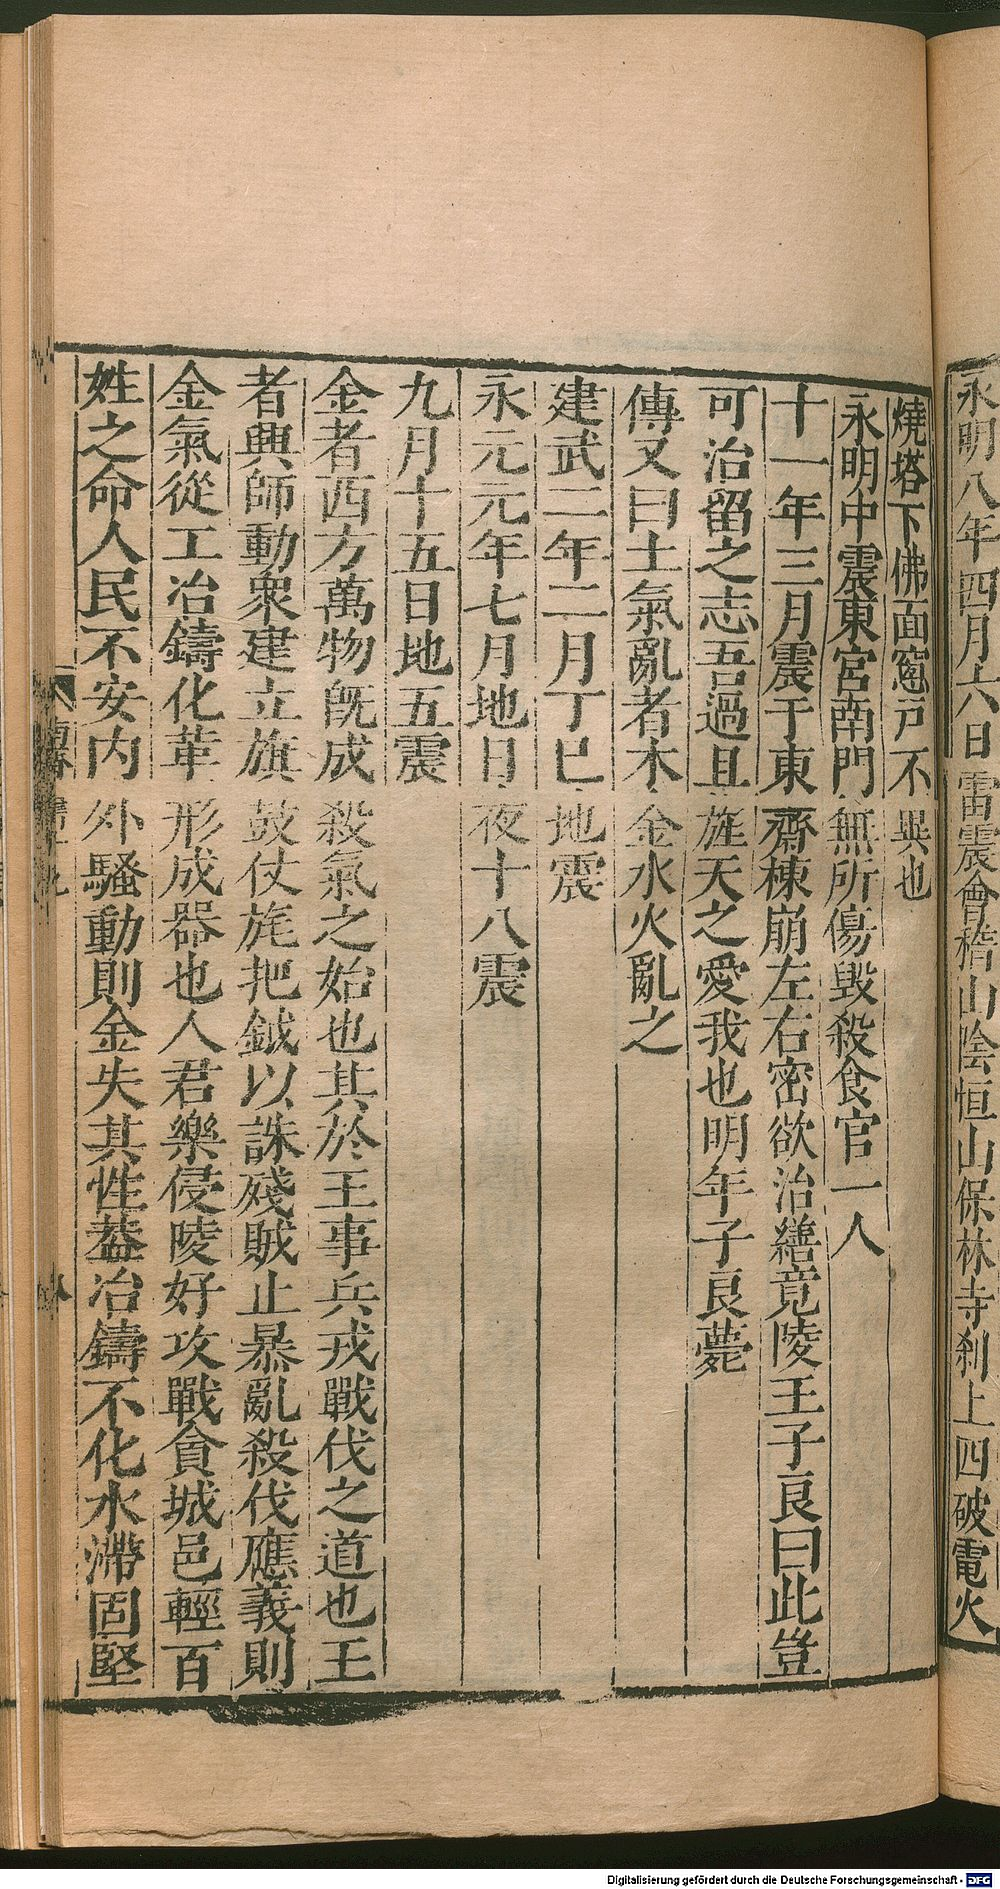 永明八年四月六日雷震會稽山陰恒山保林寺刹上四破電火
燒塔下佛面窓戸不異也
永明中震東宮南門無所傷毁殺食官一人
十一年三月震于東齋棟崩左右密欲治繕竟陵王子良曰此豈
可治留之志吾過且旌天之愛我也明年子良薨
傳又曰土氣亂者木金水火亂之
建武二年二月丁巳地震
永元元年七月地日夜十八震
九月十五日地五震
金者西方萬物旣成殺氣之始也其於王事兵戎戰伐之道也王
者興師動衆建立旗鼓仗旄把鉞以誅殘賊止暴亂殺伐應義則
金氣從工冶鑄化革形成器也人君樂侵陵好攻戰貪城邑輕百
姓之命人民不安内外騷動則金失其性葢冶鑄不化水滯固堅
Digitalisierung gefördert durch die Deutsche Forschungsgemeinschaft - DFG